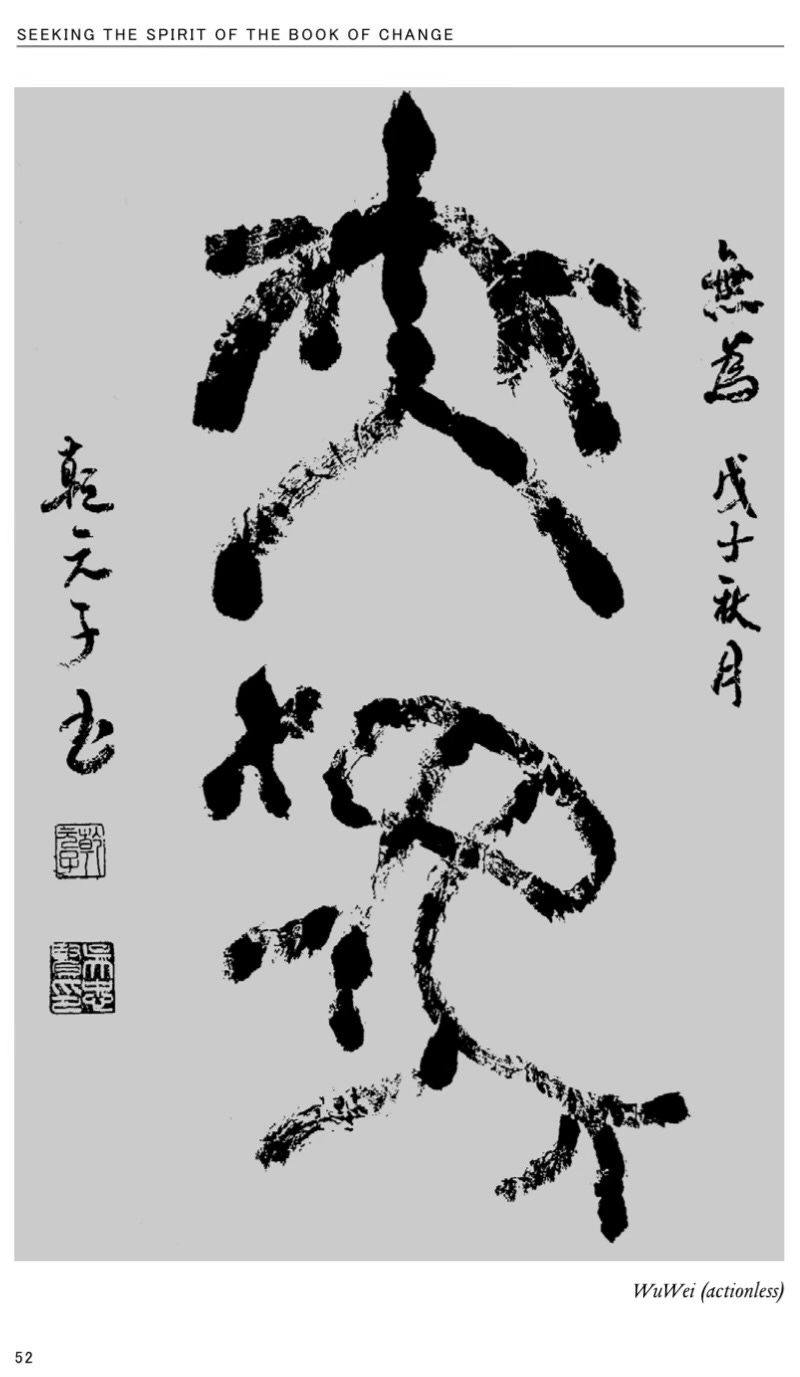 SEEKING THE SPIRIT OF THE BOOK OF CHANGE
無為
無為 戊子秋月
乾元子书
乾元子
吳忠賢印
WuWei (actionless)
52